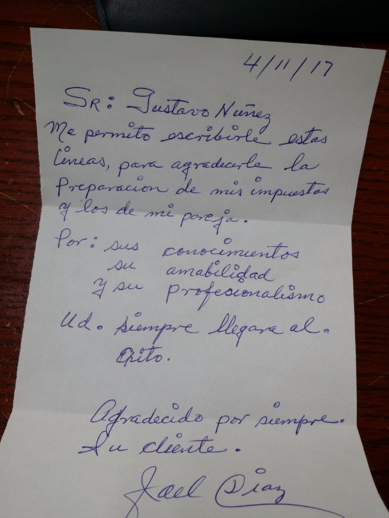 4/11/17
Sr: Gustavo Núñez
Me permito escribirle estas
lineas, para agradecerle la
preparacion de mis impuestos
y los de mi pareja.
Por: sus conocimientos
su amabilidad
y su profesionalismo
Ud. siempre llegara al.
exito.
Agradecido por siempre.
Su cliente.
Jael Diaz